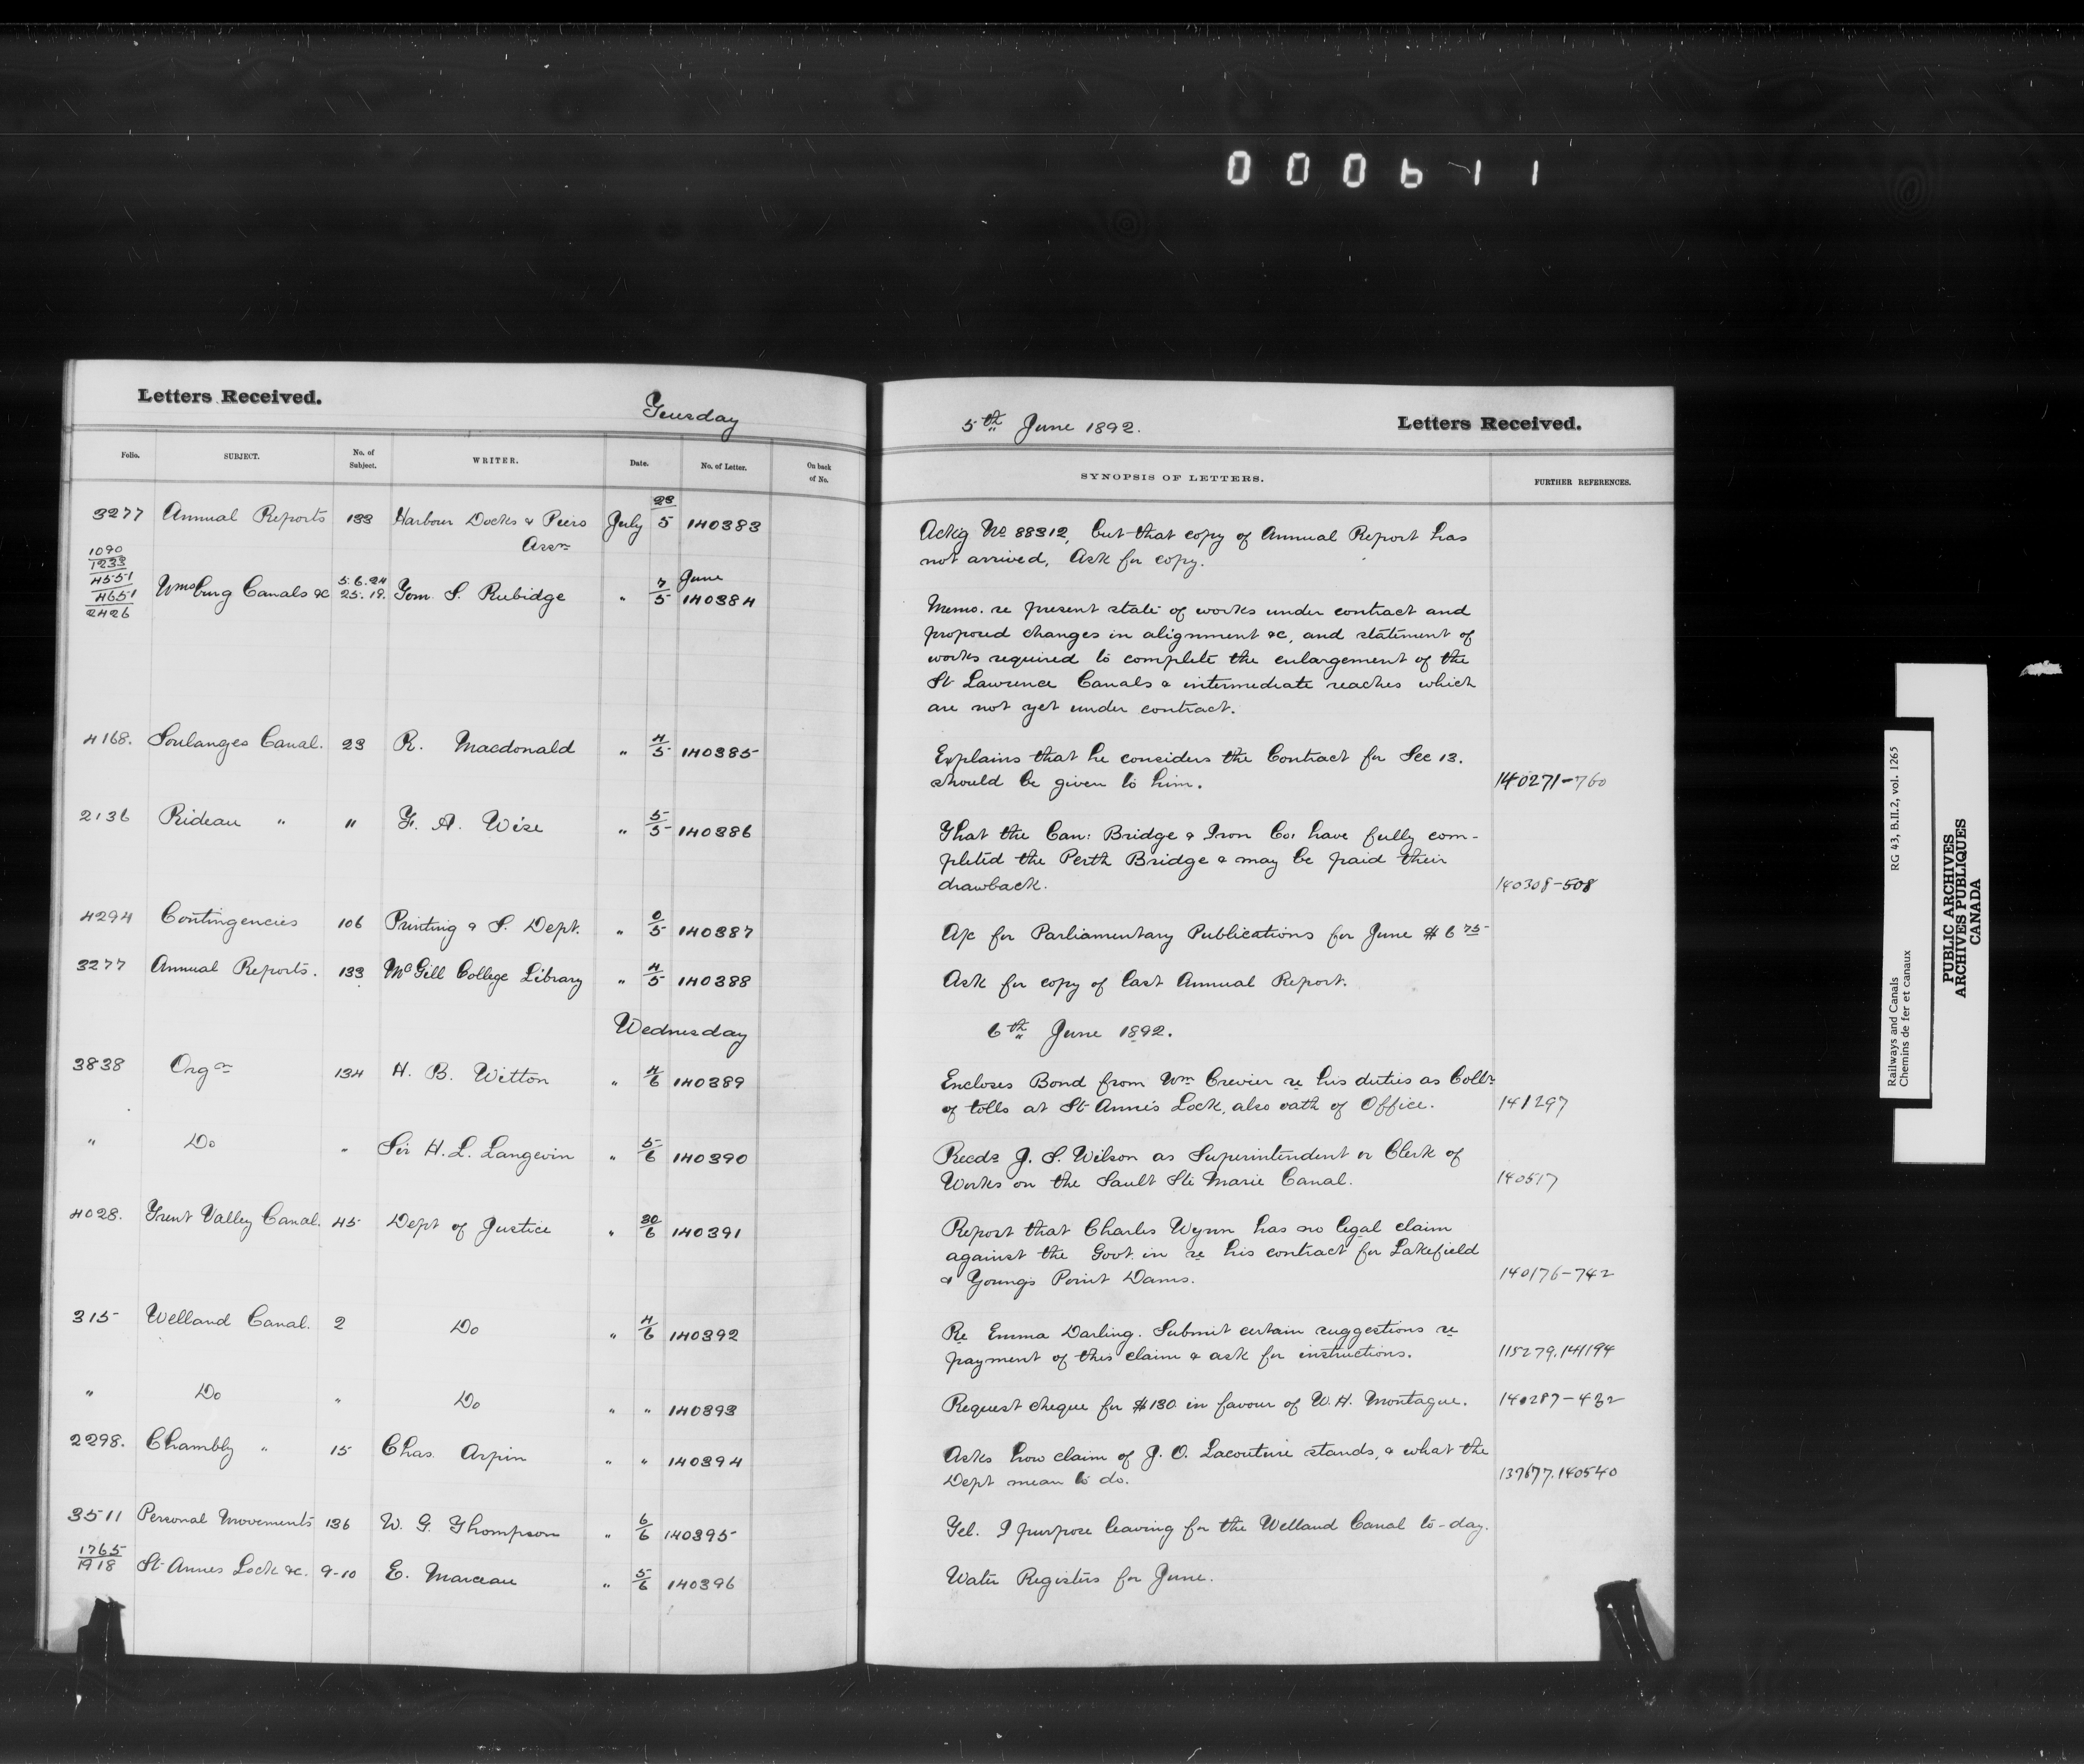 000611
Letters Received.
Tuesday
Folio. SUBJECT. No. of Subject. WRITER. Date. No. of Letter. On back of No.
3277 Annual Reports 133 Harbour Docks & Piers Assn July 28/5 140383
1090 1233 4551 4651 2426 Wmsburg Canals &c 5.6.24 25.19. Tom. S. Rubidge " 7/5 June 140384
4168. Soulanges Canal. 23 R. Macdonald " 4/5 140385
2136 Rideau " " F. A. Wise " 5/5 140386
4294 Contingencies 106 Printing & S. Dept. " 0/5 140387
3277 Annual Reports. 133 McGill College Library " 4/5 140388
Wednesday
3838 Orgn 134 H. B. Witton " 4/6 140389
" Do " Sir H. L. Langevin " 5/6 140390
4028. Trent Valley Canal. 45 Dept of Justice " 30/6 140391
315 Welland Canal. 2 Do " 4/6 140392
" Do " Do " " 140393
2298. Chambly " 15 Chas. Arpin " " 140394
3511 Personal Movements 136 W. G. Thompson " 6/6 140395
1765/1918 St Annes Lock &c. 9-10 E. Marceau " 5/6 140396
5th June 1892.
Letters Received.
SYNOPSIS OF LETTERS. FURTHER REFERENCES.
Ackg No 88312, but that copy of Annual Report has
not arrived, Ask for copy.
Memo. re present state of works under contract and
proposed changes in alignment &c, and statement of
works required to complete the enlargement of the
St Lawrence Canals & intermediate reaches which
are not yet under contract.
Explains that he considers the Contract for Sec 13.
should be given to him. 140271-760
That the Can: Bridge & Iron Co: have fully com-
pleted the Perth Bridge & may be paid their
drawback. 140308-508
A/c for Parliamentary Publications for June $6 75
Ask for copy of last Annual Report.
6th June 1892.
Encloses Bond from Wm Crevier re his duties as Collr
of tolls at St Anne's Lock, also oath of Office. 141297
Recds J. S. Wilson as Superintendent or Clerk of
Works on the Sault Ste Marie Canal. 140517
Report that Charles Wynn has no legal claim
against the Govt. in re his contract for Lakefield
& Young's Point Dams. 140176-742
Re Emma Darling. Submit certain suggestions re
payment of this claim & ask for instructions. 115279.141194
Request cheque for $130 in favour of W. H. Montague. 140287-432
Asks how claim of J. O. Lacouture stands, & what the
Dept mean to do. 137677.140540
Tel. I purpose leaving for the Welland Canal to-day.
Water Registers for June.
Railways and Canals RG 43, B.II.2, vol. 1265
Chemins de fer et canaux
PUBLIC ARCHIVES
ARCHIVES PUBLIQUES
CANADA